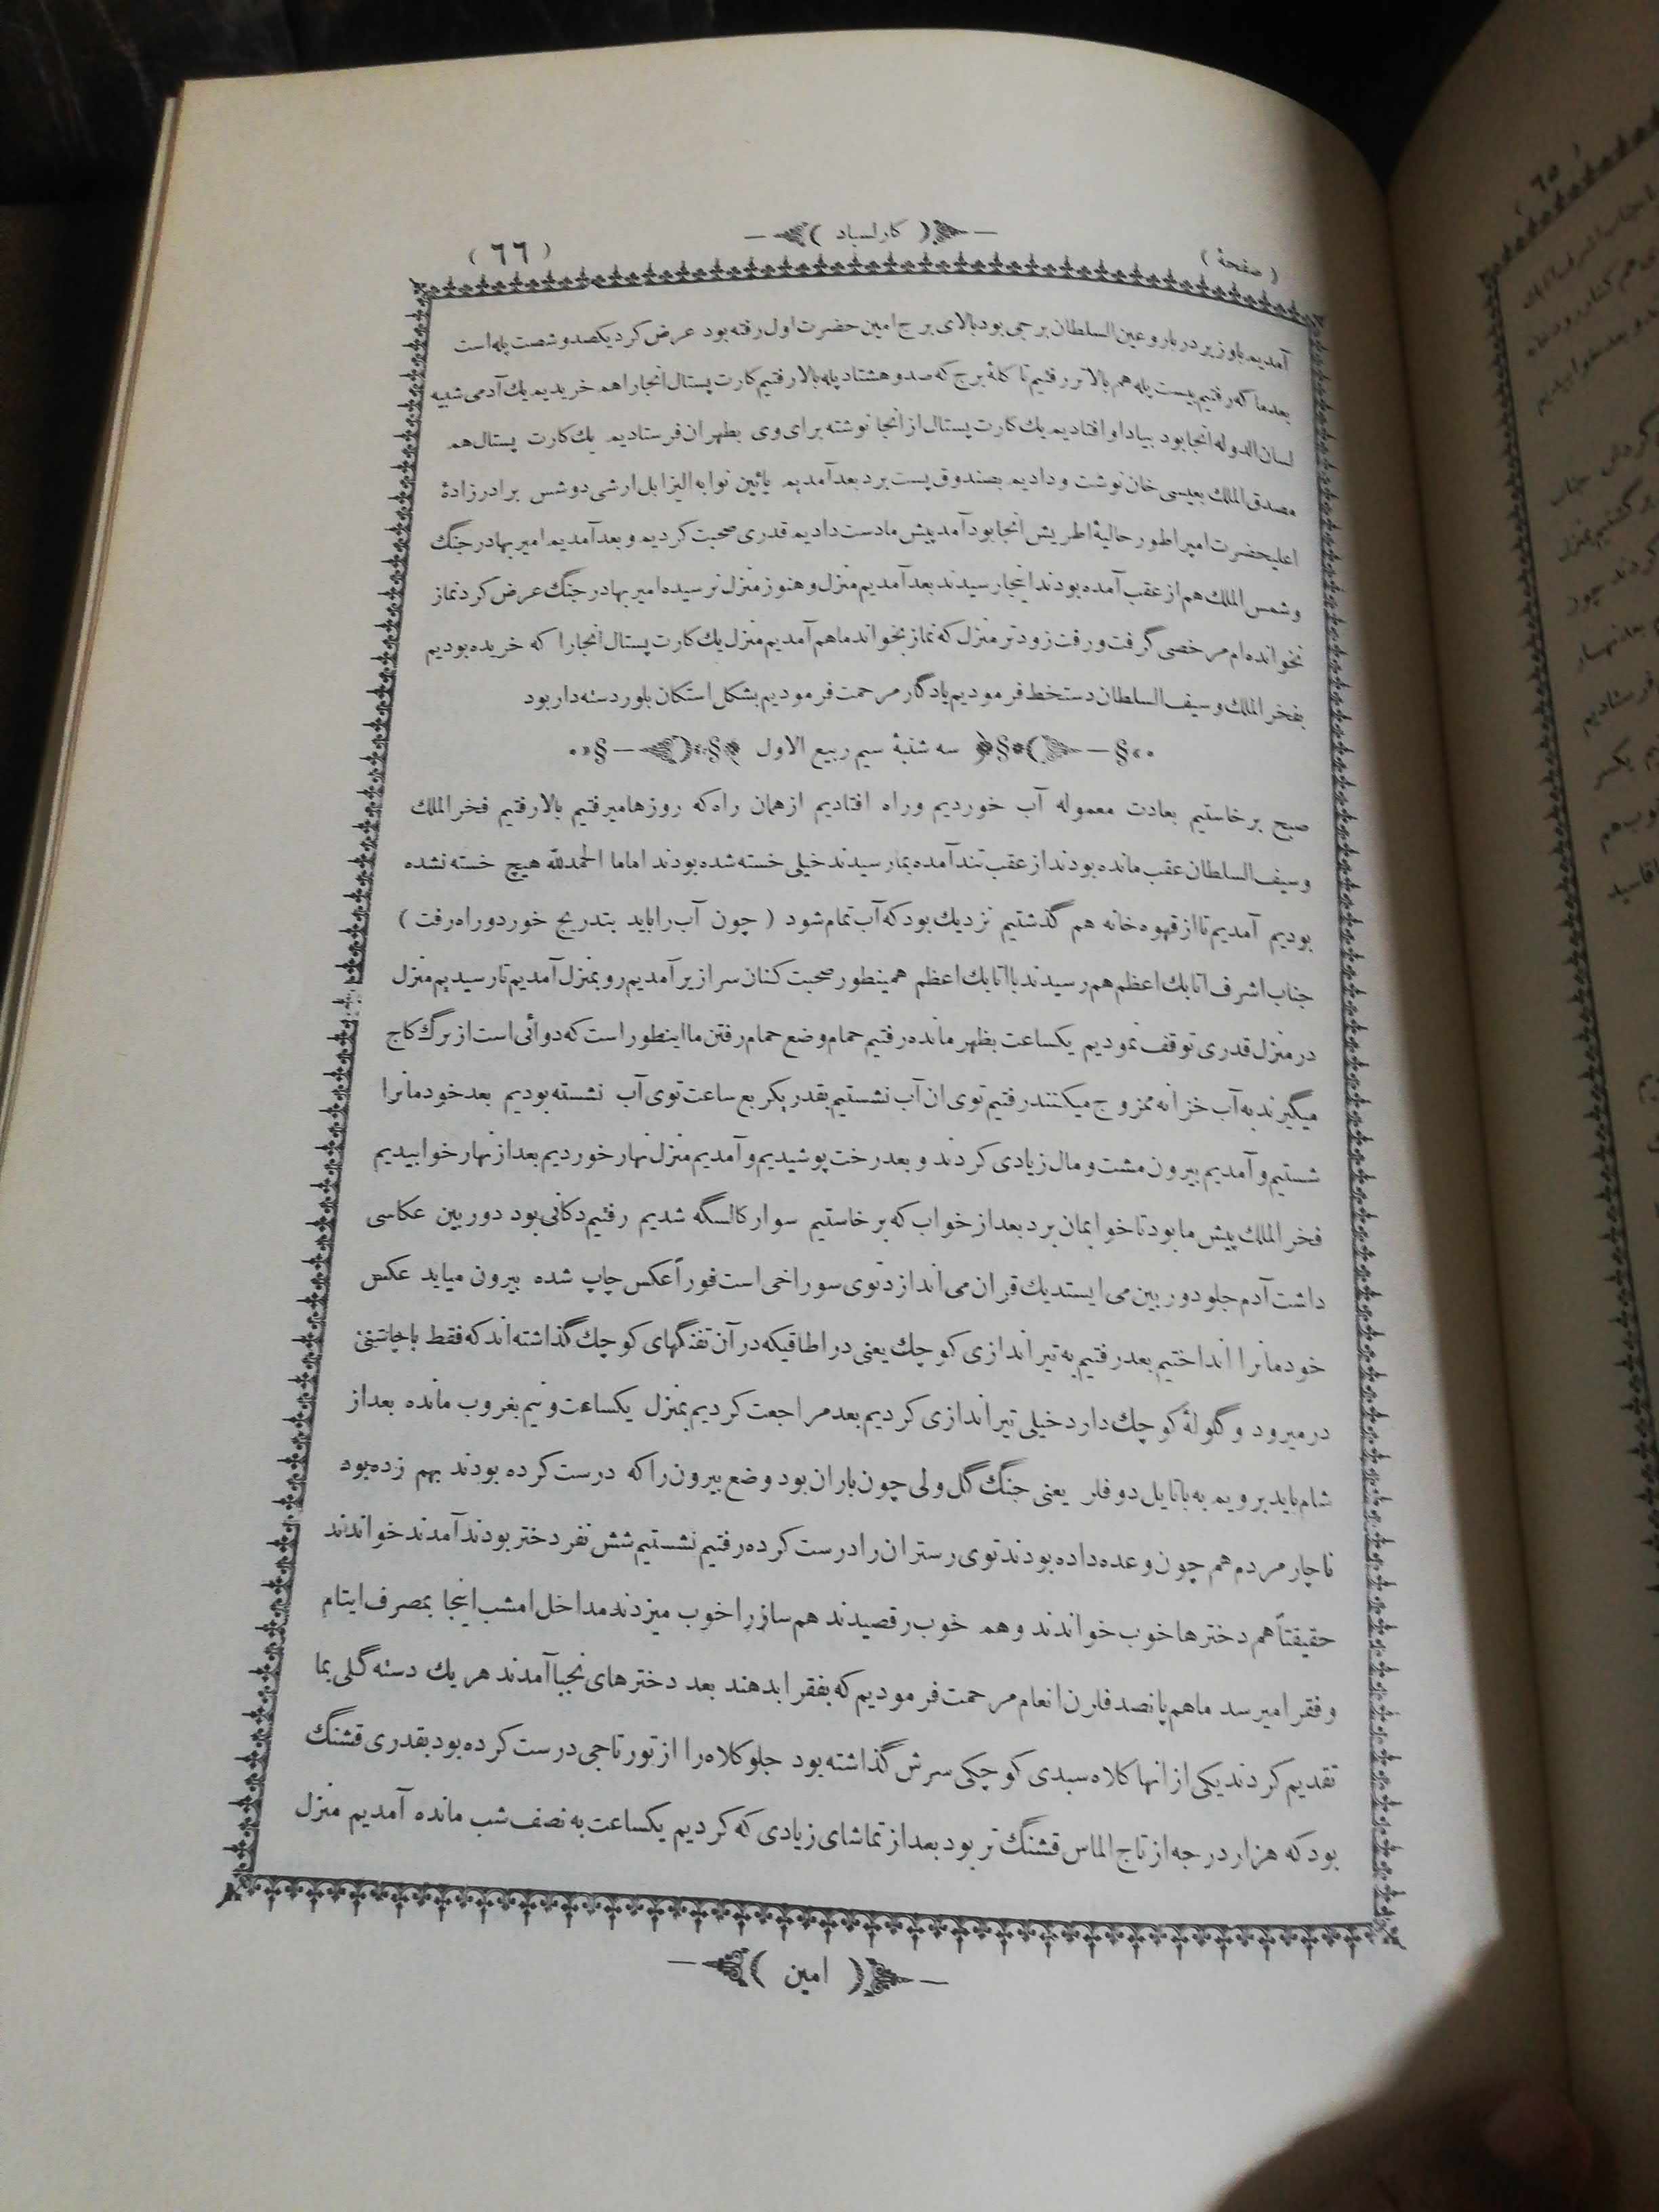 (صفحهٔ) ( کارلسباد ) (٦٦)
آمدیم باوزیر دربار وعین السلطان برجی بود بالای برج امین حضرت اول رفته بود عرض کرد یکصدوشصت پله است
بعد ما که رفتیم بیست پله هم بالاتر رفتیم تا کلهٔ برج که صدوهشتاد پله بالا رفتیم کارت پستال انجارا هم خریدیم یك آدمی شبیه
لسان الدوله انجا بود بیاد او افتادیم یك کارت پستال از انجا نوشته برای وی بطهران فرستادیم یك کارت پستال هم
مصدق الملك بعیسی خان نوشت ودادیم بصندوق پست برد بعد آمدیم پائین نوابه الیزابل ارشی دوشس برادرزادهٔ
اعلیحضرت امپراطور حالیهٔ اطریش انجا بود آمد پیش ما دست دادیم قدری صحبت کردیم وبعد آمدیم امیر بهادر جنگ
وشمس الملك هم از عقب آمده بودند اینجا رسیدند بعد آمدیم منزل وهنوز منزل نرسیده امیر بهادر جنگ عرض کرد نماز
نخوانده ام مرخصی گرفت ورفت زودتر منزل که نماز بخواند ماهم آمدیم منزل یك کارت پستال انجارا که خریده بودیم
بفخر الملك وسیف السلطان دستخط فرمودیم یادگار مرحمت فرمودیم بشکل استکان بلور دسته دار بود
سه شنبهٔ سیم ربیع الاول
صبح برخاستیم بعادت معموله آب خوردیم وراه افتادیم ازهمان راه که روزها میرفتیم بالا رفتیم فخر الملك
وسیف السلطان عقب مانده بودند از عقب تند آمده بما رسیدند خیلی خسته شده بودند اما ما الحمدلله هیچ خسته نشده
بودیم آمدیم تا از قهوه خانه هم گذشتیم نزدیك بود که آب تمام شود ( چون آب را باید بتدریج خورد وراه رفت )
جناب اشرف اتابك اعظم هم رسیدند با اتابك اعظم همینطور صحبت کنان سرازیر آمدیم رو بمنزل آمدیم تا رسیدیم منزل
در منزل قدری توقف نمودیم یکساعت بظهر مانده رفتیم حمام وضع حمام رفتن ما اینطور است که دوائی است از برگ کاج
میگیرند به آب خزانه ممزوج میکنند رفتیم توی ان آب نشستیم بقدر یکربع ساعت توی آب نشسته بودیم بعد خودمانرا
شستیم وآمدیم بیرون مشت ومال زیادی کردند وبعد رخت پوشیدیم وآمدیم منزل نهار خوردیم بعد از نهار خوابیدیم
فخر الملك پیش ما بود تا خوابمان برد بعد از خواب که برخاستیم سوار کالسگه شدیم رفتیم دکانی بود دوربین عکاسی
داشت آدم جلو دوربین می ایستد یك قران می اندازد توی سوراخی است فوراً عکس چاپ شده بیرون میاید عکس
خودمانرا انداختیم بعد رفتیم به تیر اندازی کوچك یعنی در اطاقیکه در آن تفنگهای کوچك گذاشته اند که فقط با چاشنی
درمیرود وگلولهٔ کوچك دارد خیلی تیر اندازی کردیم بعد مراجعت کردیم بمنزل یکساعت ونیم بغروب مانده بعد از
شام باید برویم به باتایل دوفلر یعنی جنگ گل ولی چون باران بود وضع بیرون را که درست کرده بودند بهم زده بود
ناچار مردم هم چون وعده داده بودند توی رستران را درست کرده رفتیم نشستیم شش نفر دختر بودند آمدند خواندند
حقیقتاً هم دخترها خوب خواندند وهم خوب رقصیدند هم ساز را خوب میزدند مداخل امشب اینجا بمصرف ایتام
وفقرا میرسد ماهم پانصد فلرن انعام مرحمت فرمودیم که بفقرا بدهند بعد دخترهای نجبا آمدند هر یك دسته گلی بما
تقدیم کردند یکی از انها کلاه سبدی کوچکی سرش گذاشته بود جلو کلاه را از تور تاجی درست کرده بود بقدری قشنگ
بود که هزار درجه از تاج الماس قشنگ تر بود بعد از تماشای زیادی که کردیم یکساعت به نصف شب مانده آمدیم منزل
( امین )